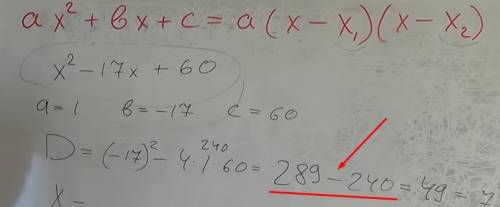 ax² + bx + c = a(x - x₁)(x - x₂)
x² - 17x + 60
a = 1 b = -17 c = 60
240
D = (-17)² - 4·1·60 = 289 - 240 = 49 = 7
x -